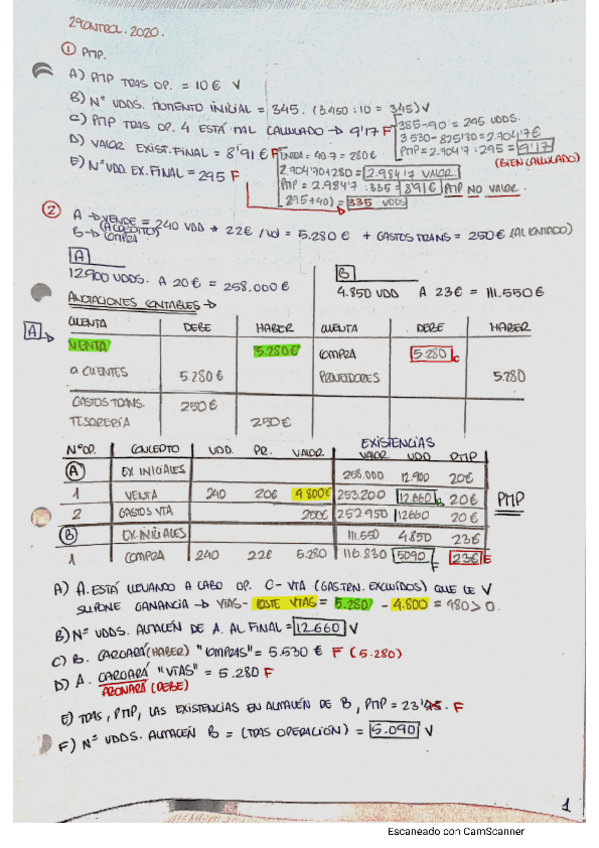 2º CONTROL. 2020.
① PMP.
A) PMP TRAS OP. = 10 € V
B) Nº UDDS. MOMENTO INICIAL = 345. (3.450 : 10 = 345) V
C) PMP TRAS OP. 4 ESTÁ MAL CALCULADO → 9'17 F
385 - 90 = 295 UDDS.
3.530 - 825'30 = 2.704'7 €
PMP = 2.704'7 : 295 = 9'17
(BIEN CALCULADO)
D) VALOR EXIST. FINAL = 8'91 € F
ENTRA = 40·7 = 280 €
2.704'70 + 280 = 2.984'7 VALOR.
PMP = 2.984'7 : 335 = 8'91 € PMP NO VALOR.
295 + 40) = 335 UDDS
E) Nº UDD. EX. FINAL = 295 F
② A → VENDE = 240 UDD * 22 € / Ud = 5.280 € + GASTOS TRANS = 250 € (AL CONTADO)
(A CRÉDITO)
B → COMPRA
A
12.900 UDDS. A 20 € = 258.000 €
B
4.850 UDD A 23 € = 111.550 €
ANOTACIONES CONTABLES →
A
CUENTA DEBE HABER CUENTA DEBE HABER
VENTA 5.280 € COMPRA 5.280 C
a CLIENTES 5.280 € PROVEEDORES 5.280
GASTOS TRANS. 250 €
TESORERÍA 250 €
EXISTENCIAS
Nº OP. CONCEPTO UDD. PR. VALOR VALOR UDD PMP
A EX INICIALES 258.000 12.900 20 €
1 VENTA 240 20 € 4.800 € 253.200 12.660 B 20 € PMP
2 GASTOS VTA 250 € 252.950 12660 20 €
B EX. INICIALES 111.550 4.850 23 €
1 COMPRA 240 22 € 5.280 116.830 5090 F 23 € E
A) A. ESTÁ LLEVANDO A CABO OP. C-VTA (GAST. TRN. EXCLUÍDOS) QUE LE V
SUPONE GANANCIA → VTAS - COSTE VTAS = 5.280 - 4.800 = 480 > 0.
B) Nº UDDS. ALMACÉN DE A. AL FINAL = 12.660 V
C) B. CARGARÁ (HABER) "COMPRAS" = 5.530 € F (5.280)
D) A. CARGARÁ "VTAS" = 5.280 F
ABONARÁ (DEBE)
E) TRAS, PMP, LAS EXISTENCIAS EN ALMACÉN DE B, PMP = 23'45. F
F) Nº UDDS. ALMACÉN B = (TRAS OPERACIÓN) = 5.090 V
1
Escaneado con CamScanner